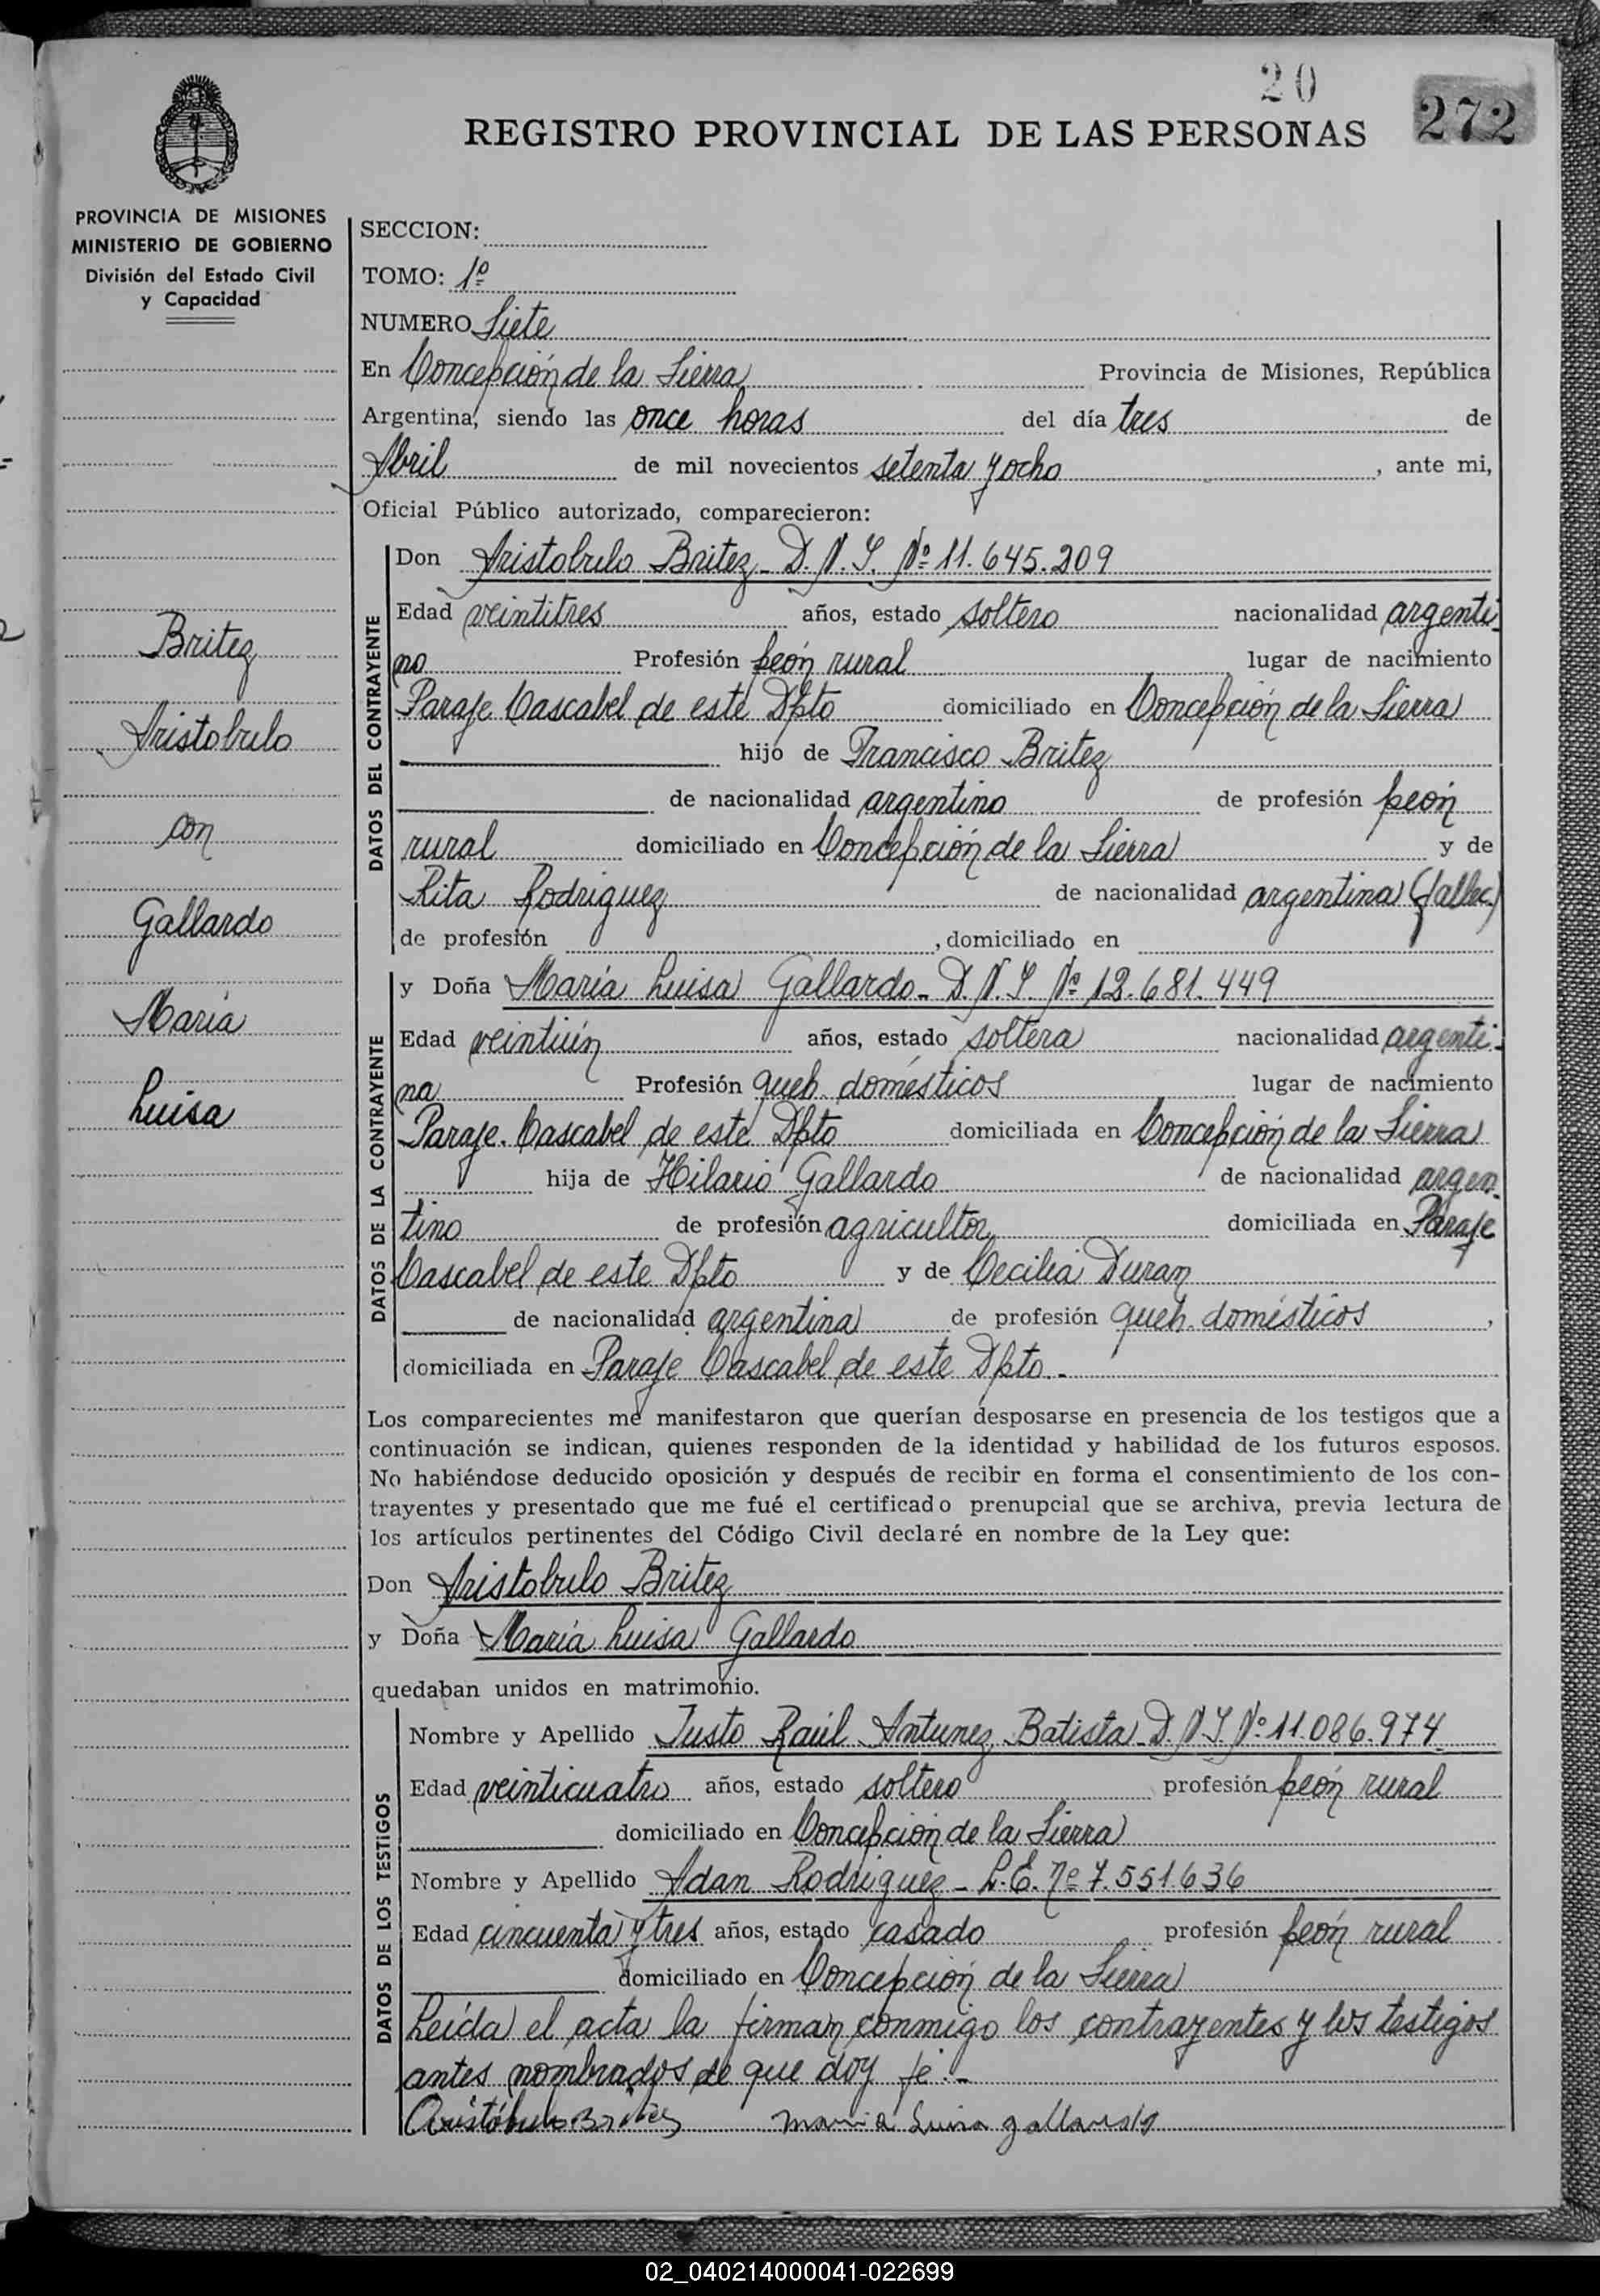 20
272
REGISTRO PROVINCIAL DE LAS PERSONAS
PROVINCIA DE MISIONES
MINISTERIO DE GOBIERNO
División del Estado Civil
y Capacidad
Britez
Aristobulo
con
Gallardo
María
Luisa
SECCION:
TOMO: 1º
NUMERO Siete
En Concepción de la Sierra Provincia de Misiones, República
Argentina, siendo las once horas del día tres de
Abril de mil novecientos setenta y ocho, ante mi,
Oficial Público autorizado, comparecieron:
DATOS DEL CONTRAYENTE
Don Aristobulo Britez - D.N.I. Nº 11.645.209
Edad veintitres años, estado soltero nacionalidad argenti-
no Profesión peón rural lugar de nacimiento
Paraje Cascabel de este Dpto domiciliado en Concepción de la Sierra
hijo de Francisco Britez
de nacionalidad argentino de profesión peón
rural domiciliado en Concepción de la Sierra y de
Rita Rodriguez de nacionalidad argentina (fallec.)
de profesión , domiciliado en
DATOS DE LA CONTRAYENTE
y Doña María Luisa Gallardo - D.N.I. Nº 12.681.449
Edad veintiún años, estado soltera nacionalidad argenti-
na Profesión queh. domésticos lugar de nacimiento
Paraje Cascabel de este Dpto domiciliada en Concepción de la Sierra
hija de Hilario Gallardo de nacionalidad argen-
tino de profesión agricultor domiciliada en Paraje
Cascabel de este Dpto y de Cecilia Duran
de nacionalidad argentina de profesión queh. domésticos,
domiciliada en Paraje Cascabel de este Dpto.-
Los comparecientes me manifestaron que querían desposarse en presencia de los testigos que a
continuación se indican, quienes responden de la identidad y habilidad de los futuros esposos.
No habiéndose deducido oposición y después de recibir en forma el consentimiento de los con-
trayentes y presentado que me fué el certificado prenupcial que se archiva, previa lectura de
los artículos pertinentes del Código Civil declaré en nombre de la Ley que:
Don Aristobulo Britez
y Doña María Luisa Gallardo
quedaban unidos en matrimonio.
DATOS DE LOS TESTIGOS
Nombre y Apellido Justo Raúl Antunez Batista - D.N.I. Nº 11.086.974
Edad veinticuatro años, estado soltero profesión peón rural
domiciliado en Concepción de la Sierra
Nombre y Apellido Adan Rodriguez - L.E. Nº 7.551.636
Edad cincuenta y tres años, estado casado profesión peón rural
domiciliado en Concepción de la Sierra
Leída el acta la firman conmigo los contrayentes y los testigos
antes nombrados de que doy fé.-
Aristóbulo Britez Maria Luisa gallardo
02_040214000041-022699